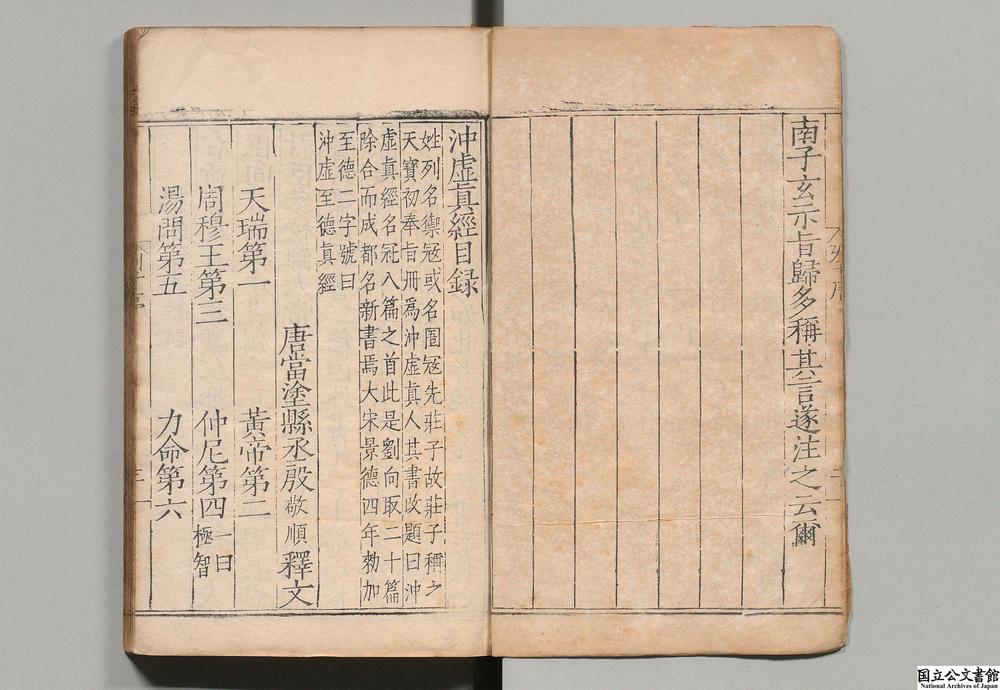 南子玄示旨歸多稱其言遂注之云爾
沖虛真經目錄
姓列名禦寇或名圄寇先莊子故莊子稱之
天寶初奉旨冊為沖虛真人其書改題曰沖
虛真經名冠八篇之首此是劉向取二十篇
除合而成都名新書焉大宋景德四年勑加
至德二字號曰
沖虛至德真經
唐當塗縣丞殷敬順釋文
天瑞第一 黃帝第二
周穆王第三 仲尼第四 一曰極智
湯問第五 力命第六
国立公文書館
National Archives of Japan